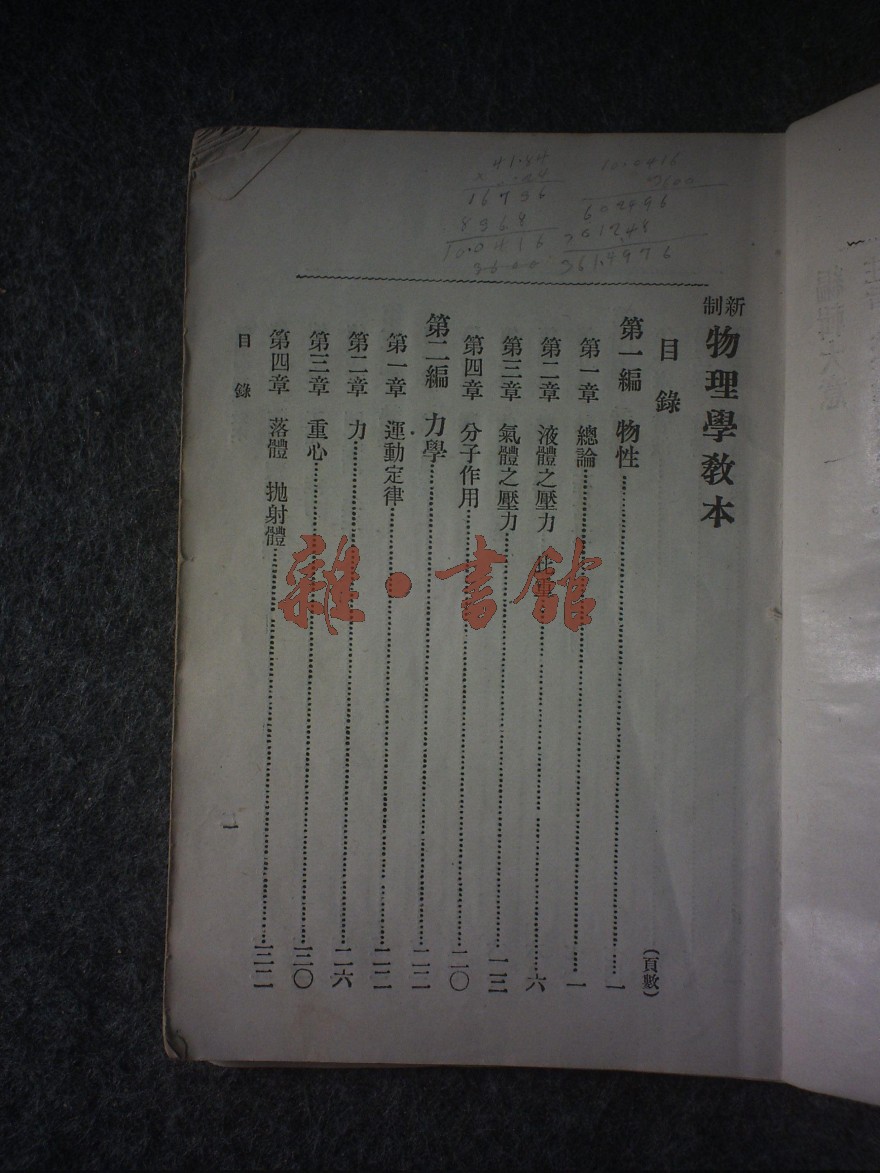 新制
物理學教本
目錄
(頁數)
第一編 物性 一
第一章 總論 一
第二章 液體之壓力 比重 六
第三章 氣體之壓力 一三
第四章 分子作用 二〇
第二編 力學 二二
第一章 運動定律 二二
第二章 力 二六
第三章 重心 三〇
第四章 落體 抛射體 三二
目錄
一
雜·書館
41.84
16736
10.0416
3600
10.0416
602496
361.4976